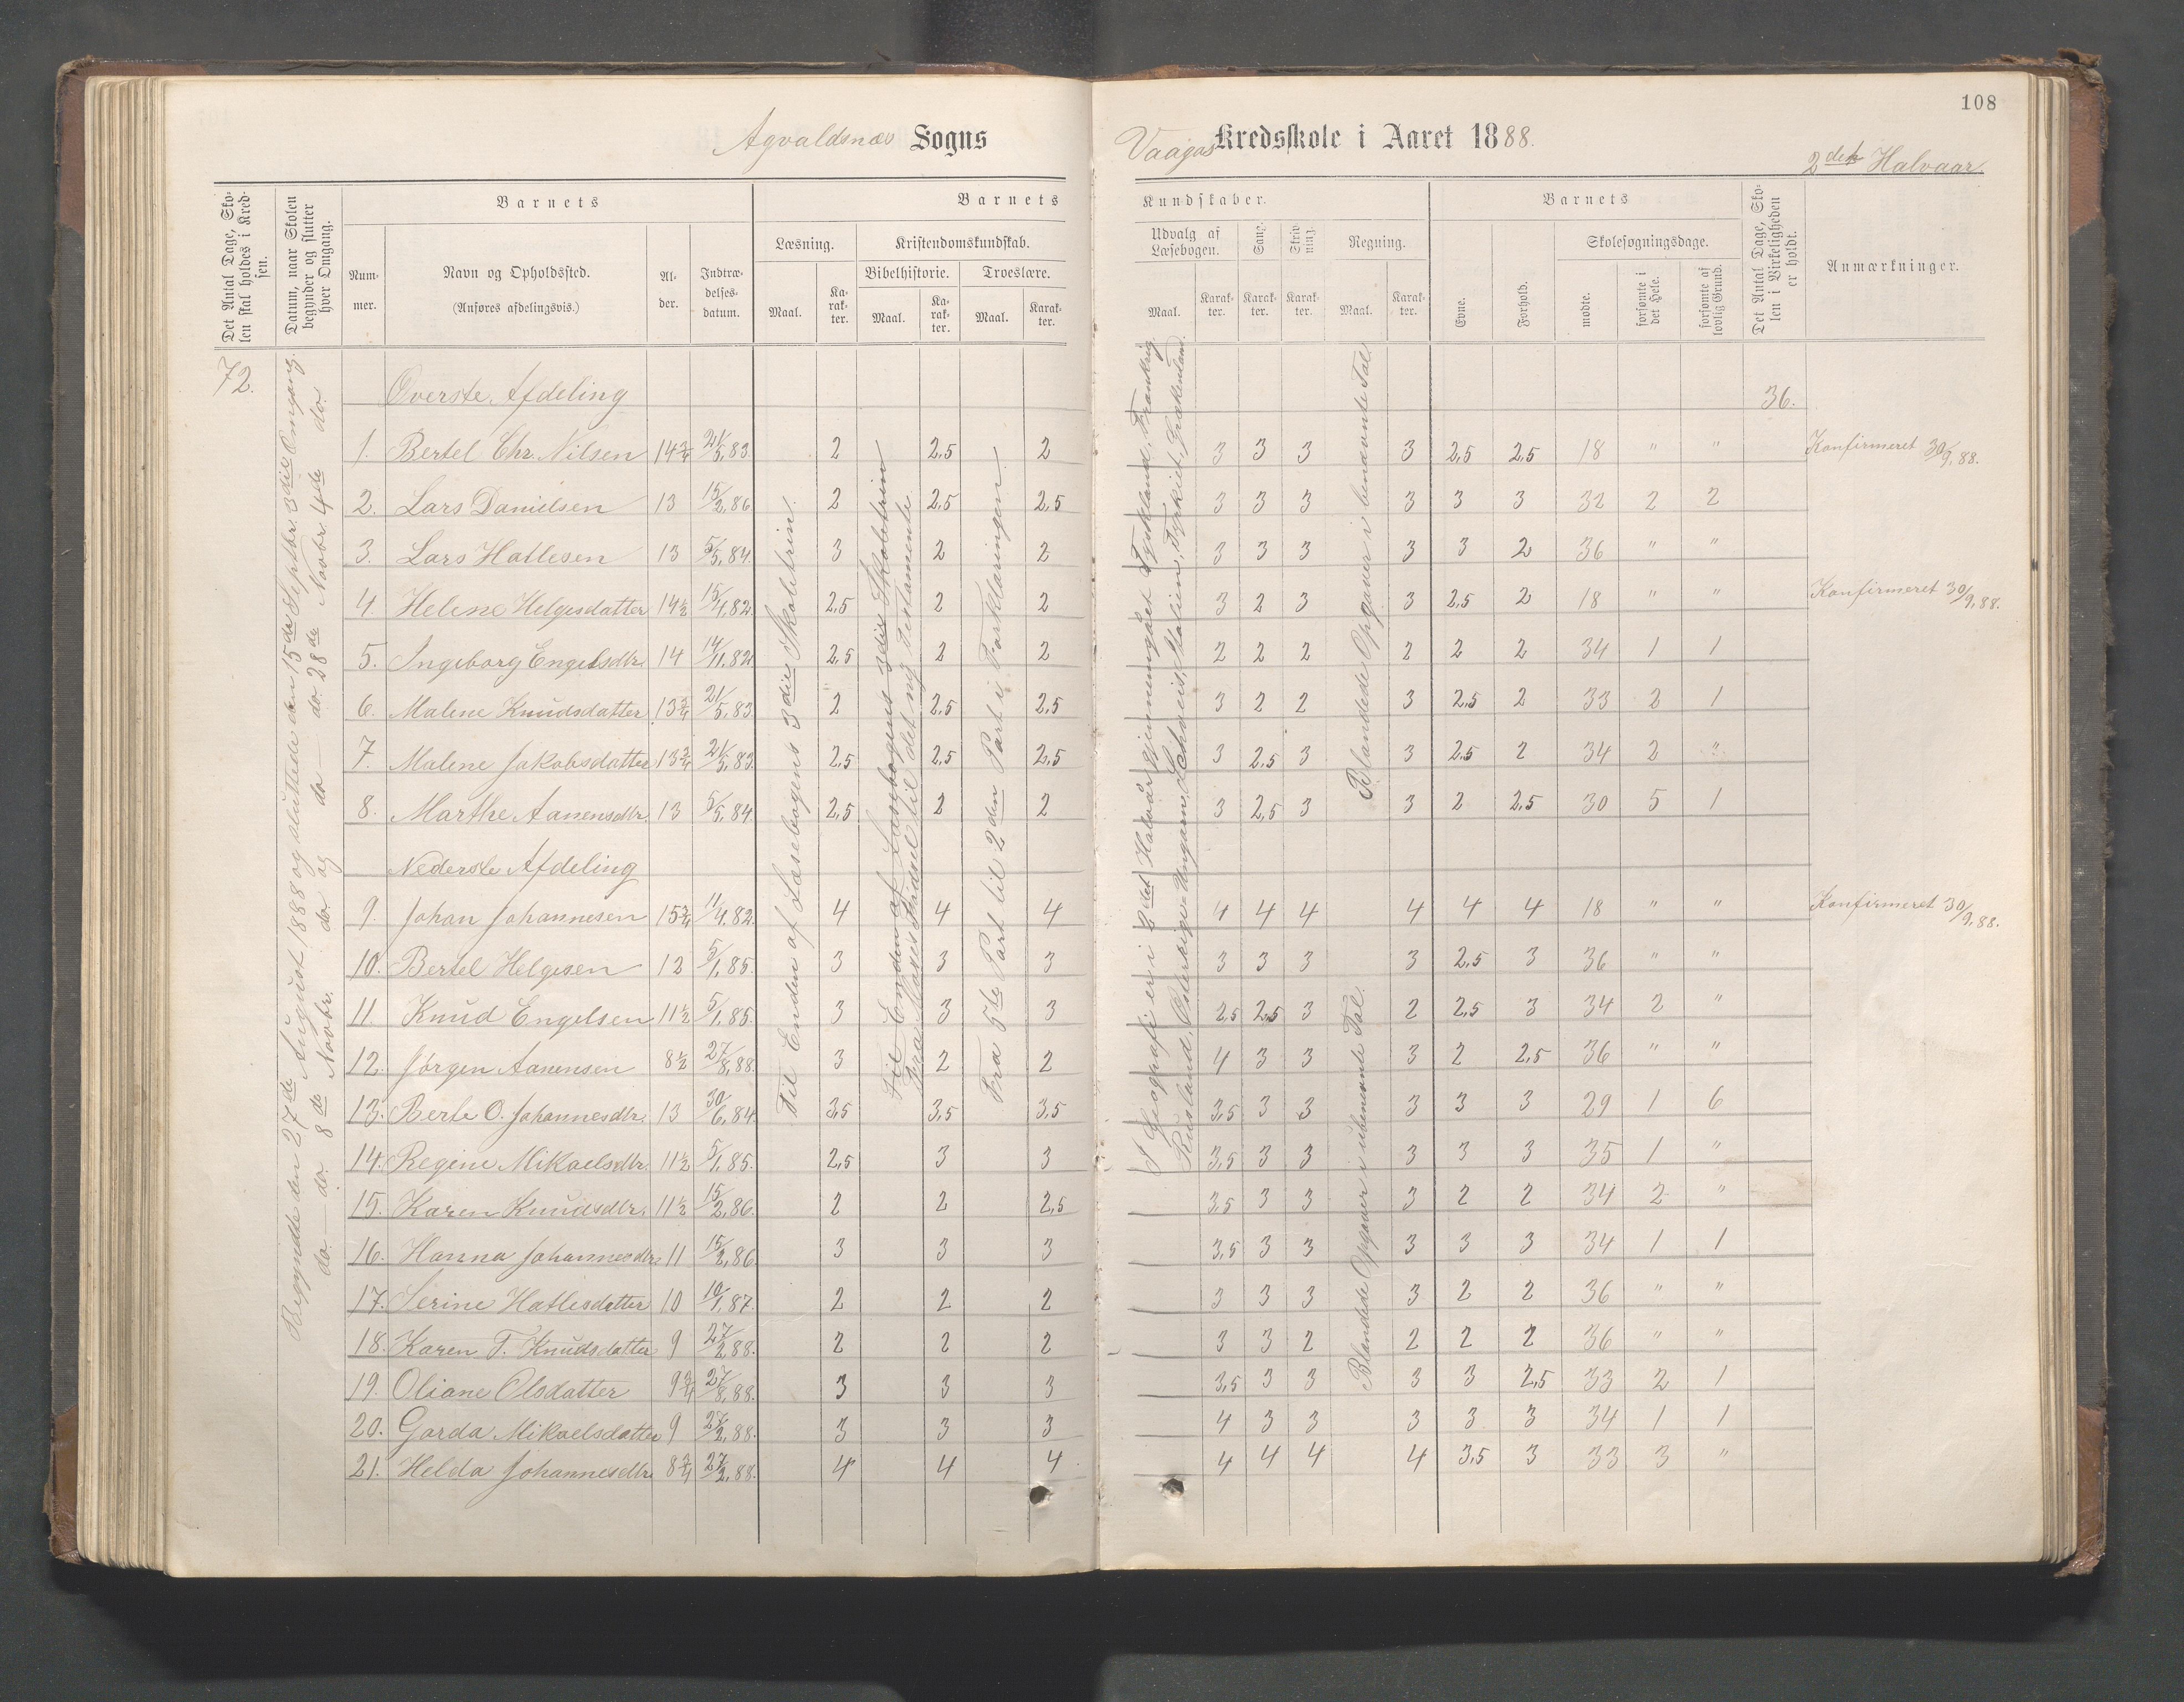 108
Agvaldsnæs Sogns
Vaagas Kredsskole i Aaret 1888.
2det Halvaar.
Det Antal Dage, Skolen skal holdes i Kredsen.
Datum, naar Skolen begynder og slutter hver Omgang.
Barnets
Nummer.
Navn og Opholdssted.
(Anføres afdelingsvis.)
Alder.
Indtrædelsesdatum.
Barnets
Læsning.
Maal.
Karakter.
Kristendomskundskab.
Bibelhistorie.
Maal.
Karakter.
Troeslære.
Maal.
Karakter.
Kundskaber.
Udvalg af Læsebogen.
Maal.
Karakter.
Sang.
Karakter.
Skrivning.
Karakter.
Regning.
Maal.
Karakter.
Barnets
Evne.
Forhold.
Skolesøgningsdage.
mødte.
forsømte i det Hele.
forsømte af lovlig Grund.
Det Antal Dage, Skolen i Virkeligheden er holdt.
Anmærkninger.
72.
Begyndte den 27de August 1888 og sluttede den 15de Septbr. 3die Omgang.
do. — do. 8de Novbr. do og do — do. 28de Novbr. 4de do.
Til Enden af Læsebogens 3die Skoletrin.
Til Enden af Læsebogens 3die Skoletrin
Fra Moses Fødsel til det ny Testamente
Fra 5te Part til 2den Part i Forklaringen.
I Geografi er i 2det Halvår gjennemgået Tyskland, Frankrig
Rusland, Østerkige-Ungarn, Schweis, Italien, Tyrkiet, Grækenland.
Blandede Opgaver i benævnte Tal
Blandede Opgaver i ubenævnte Tal.
Øverste Afdeling 36.
1. Bertel Chr. Nilsen 14 3/4 21/5,83. 2 2,5 2 3 3 3 3 2,5 2,5 18 " " Konfirmeret 30/9,88.
2. Lars Danielsen 13 15/2,86 2 2,5 2,5 3 3 3 3 3 3 32 2 2
3. Lars Hatlesen 13 5/5,84. 3 2 2 3 3 3 3 3 2 36 " "
4. Helene Helgesdatter 14 1/2 15/4,82. 2,5 2 2 3 2 3 3 2,5 2 18 " " Konfirmeret 30/9,88.
5. Ingeborg Engelsdtr. 14 14/11,82. 2,5 2 2 2 2 2 2 2 2 34 1 1
6. Malene Knudsdatter 13 3/4 21/5,83 2 2,5 2,5 3 2 2 3 2,5 2 33 2 1
7. Malene Jakobsdatter 13 3/4 21/5,83. 2,5 2,5 2,5 3 2,5 3 3 2,5 2 34 2
8. Marthe Aanensdtr. 13 5/5,84. 2,5 2 2 3 2,5 3 3 2 2,5 30 5 1
Nederste Afdeling
9. Johan Johannesen 15 3/4 11/4,82. 4 4 4 4 4 4 4 4 4 18 " " Konfirmeret 30/9,88.
10. Bertel Helgesen 12 5/1,85. 3 3 3 3 3 3 3 2,5 3 36 " "
11. Knud Engelsen 11 1/2 5/1,85. 3 3 3 2,5 2,5 3 2 2,5 3 34 2 "
12. Jørgen Aanensen 8 1/2 27/8,88. 3 2 2 4 3 3 3 2 2,5 36 " "
13. Berte O. Johannesdtr. 13 30/6,84. 3,5 3,5 3,5 3,5 3 3 3 3 3 29 1 6
14. Regine Mikaelsdtr. 11 1/2 5/1,85. 2,5 3 3 3,5 3 3 3 3 3 35 1 "
15. Karen Knudsdtr. 11 1/2 15/2,86. 2 2 2,5 3,5 3 3 3 2 2 34 2 "
16. Hanna Johannesdtr. 11 15/2,86 3 3 3 3,5 3 3 3 3 3 34 1 1
17. Serine Hatlesdatter 10 10/1,87. 2 2 2 3 3 3 3 2 2 36 " "
18. Karen T. Knudsdatter 9 27/2,88. 2 2 2 3 3 2 2 2 2 36 " "
19. Oliane Olsdatter 9 3/4 27/8,88. 3 3 3 3,5 3 3 3 3 2,5 33 2 1
20. Garda Mikaelsdatter 9 27/2,88. 3 3 3 4 3 3 3 3 3 34 1 1
21. Helda Johannesdtr. 8 3/4 27/2,88. 4 4 4 4 4 4 4 3,5 3 33 3 "